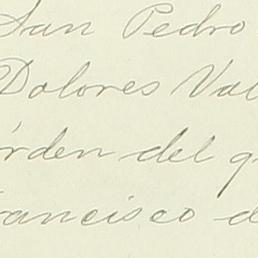 San Pedro
Dolores Val
órden del q
rancisco d